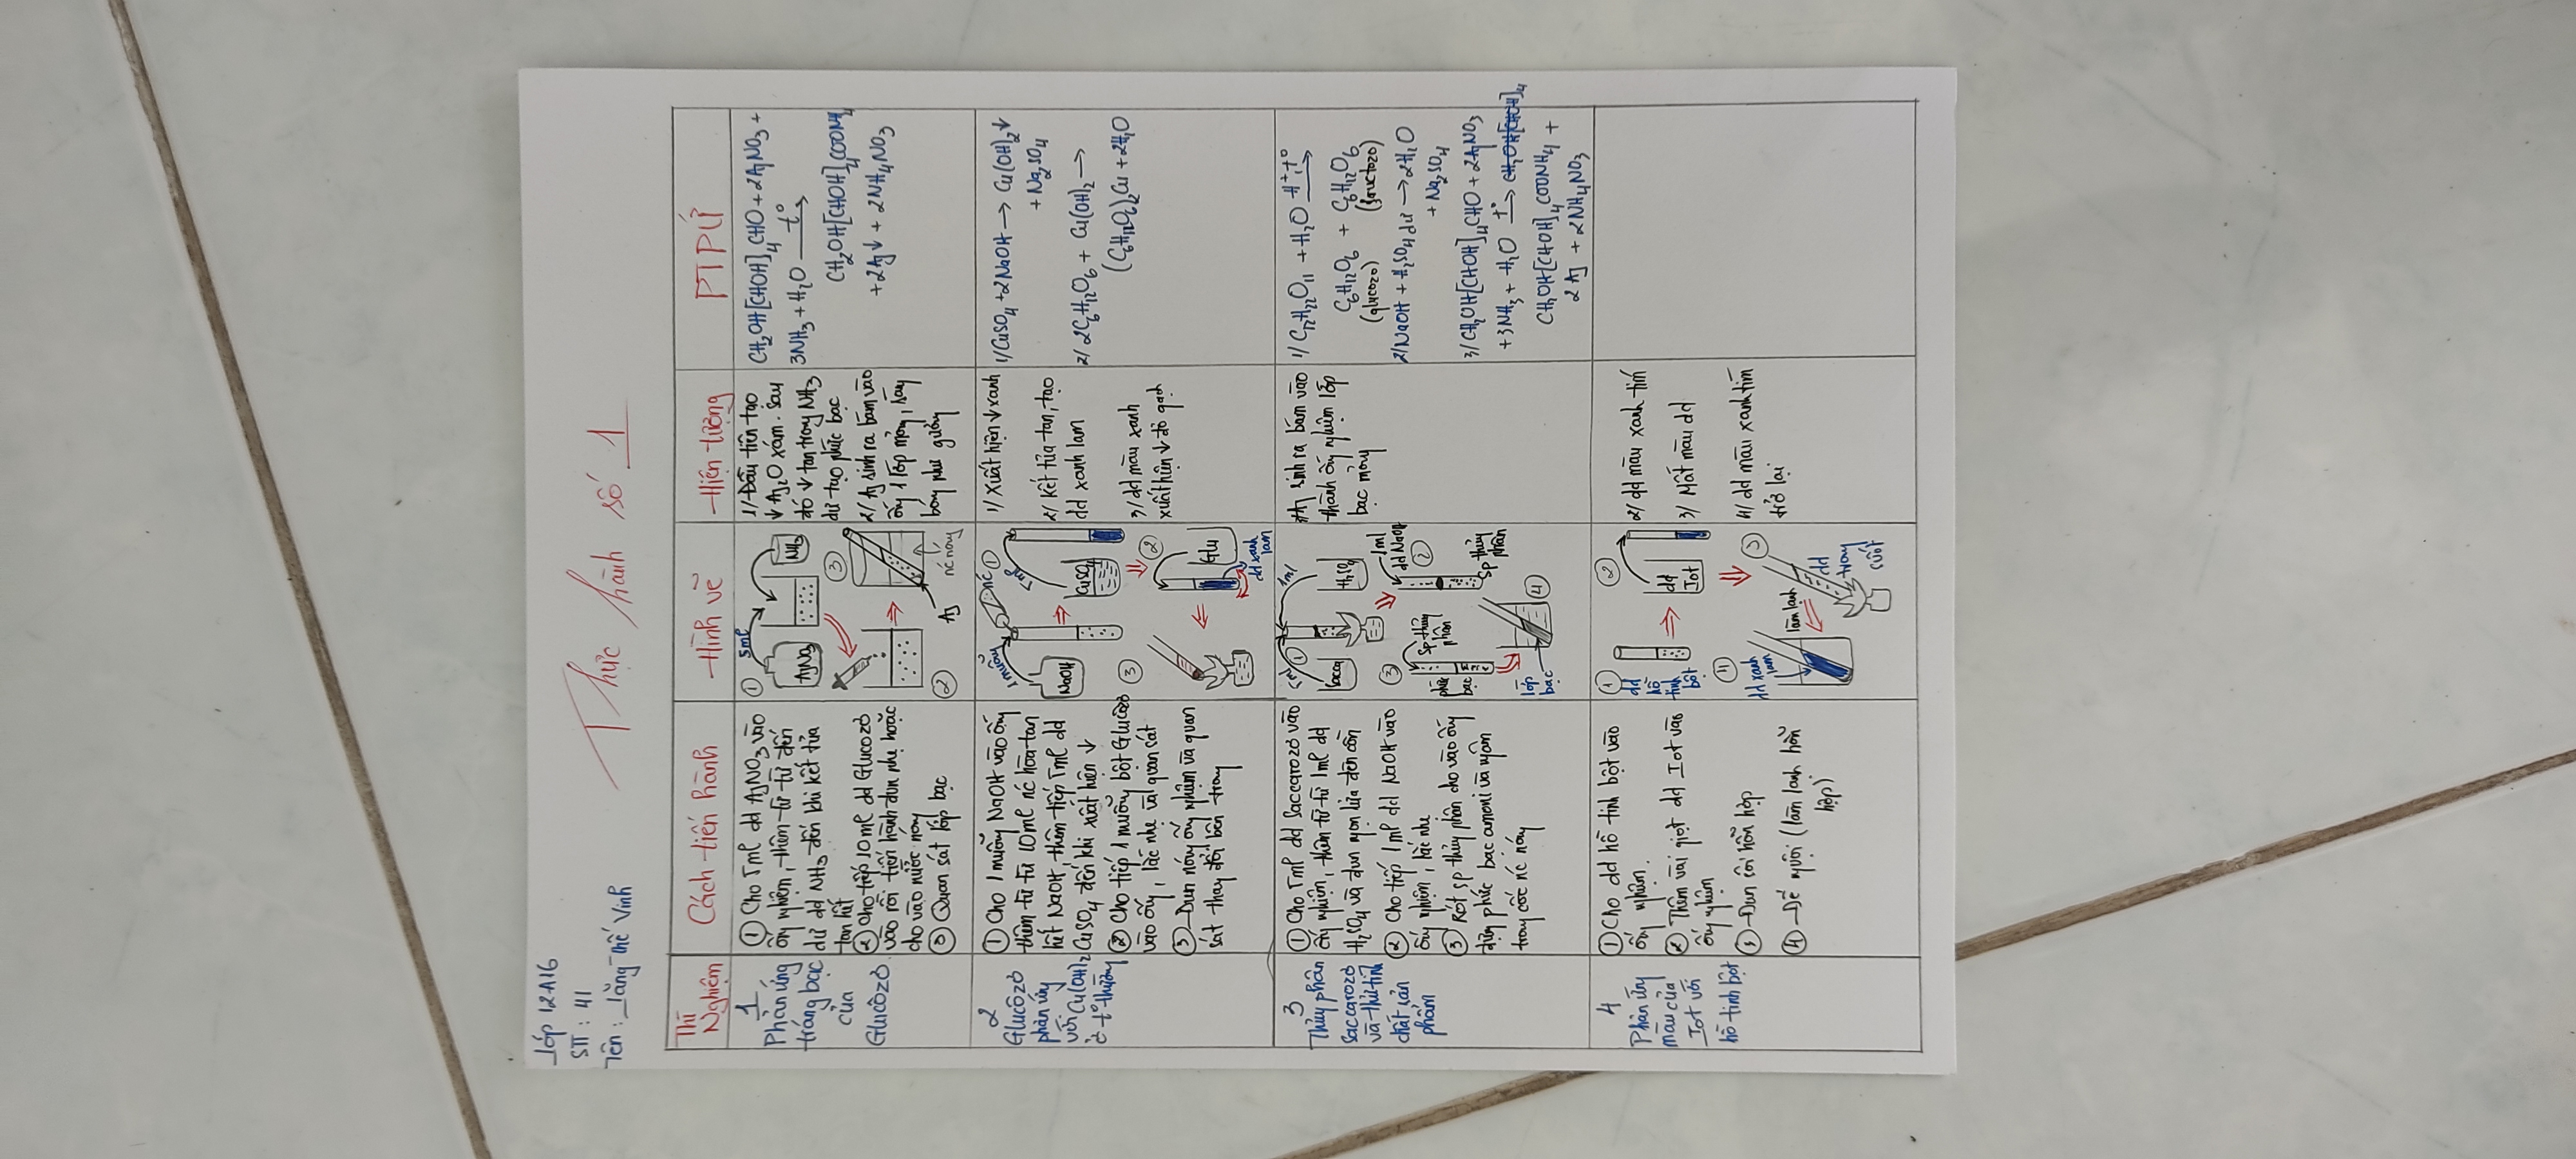 Lớp 12A16
STT : 41
Tên : Lăng Thế Vinh
Thực hành số 1
Thí
Nghiệm
Cách tiến hành
Hình vẽ
Hiện tượng
PTPỨ
1
Phản ứng
tráng bạc
của
Glucôzơ
① Cho 5ml dd AgNO3 vào
ống nghiệm, thêm từ từ đến
dư dd NH3 đến khi kết tủa
tan hết
② Cho tiếp 10ml dd Glucozơ
vào rồi tiến hành đun nhẹ hoặc
cho vào nước nóng
③ Quan sát lớp bạc
①
5ml
AgNO3
NH3
③
②
Ag
nc nóng
1/ Đầu tiên tạo
↓ Ag2O xám. Sau
đó ↓ tan trong NH3
dư tạo phức bạc
2/ Ag sinh ra bám vào
ống 1 lớp mỏng, sáng
bóng như gương
CH2OH[CHOH]4CHO + 2AgNO3 +
3NH3 + H2O t° →
CH2OH[CHOH]4COONH4
+ 2Ag↓ + 2NH4NO3
2
Glucôzơ
phản ứng
với Cu(OH)2
ở t° thường
① Cho 1 muỗng NaOH vào ống
thêm từ từ 10ml nc hòa tan
hết NaOH, thêm tiếp 5ml dd
CuSO4 đến khi xuất hiện ↓
② Cho tiếp 1 muỗng bột Glucôzơ
vào ống, lắc nhẹ và quan sát
③ Đun nóng ống nghiệm và quan
sát thay đổi bên trong
1 muỗng
nc
①
5ml
NaOH
CuSO4
③
②
Glu
dd xanh
lam
1/ Xuất hiện ↓ xanh
2/ Kết tủa tan, tạo
dd xanh lam
3/ dd màu xanh
xuất hiện ↓ đỏ gạch
1/ CuSO4 + 2NaOH → Cu(OH)2↓
+ Na2SO4
2/ 2C6H12O6 + Cu(OH)2 →
(C6H11O6)2Cu + 2H2O
3
Thủy phân
Saccarozơ
và thử tính
chất sản
phẩm
① Cho 5ml dd Saccarozơ vào
ống nghiệm, thêm từ từ 1ml dd
H2SO4 và đun ngọn lửa đèn cồn
② Cho tiếp 1ml dd NaOH vào
ống nghiệm, lắc nhẹ
③ Rót sp thủy phân cho vào ống
đựng phức bạc amoni và ngâm
trong cốc nc nóng
5ml
①
1ml
Sacca
H2SO4
③
1ml
dd NaOH
②
sp thủy
phân
phức
bạc
sp thủy
phân
lớp
bạc
④
Ag sinh ra bám vào
thành ống nghiệm lớp
bạc mỏng
1/ C12H22O11 + H2O H+, t° →
C6H12O6 + C6H12O6
(glucozo) (fructozo)
2/ NaOH + H2SO4 dư → 2H2O
+ Na2SO4
3/ CH2OH[CHOH]4CHO + 2AgNO3
+ 3NH3 + H2O t° → CH2OH[CHOH]4
CH2OH[CHOH]4COONH4 +
2Ag + 2NH4NO3
4
Phản ứng
màu của
Iot với
hồ tinh bột
① Cho dd hồ tinh bột vào
ống nghiệm.
② Thêm vài giọt dd Iot vào
ống nghiệm
③ Đun sôi hỗn hợp
④ Để nguội (làm lạnh hỗn
hợp)
①
dd
hồ
tinh
bột
②
dd
Iot
④
dd xanh
lam
③
làm lạnh
dd
trong
suốt
2/ dd màu xanh tím
3/ Mất màu dd
4/ dd màu xanh tím
trở lại